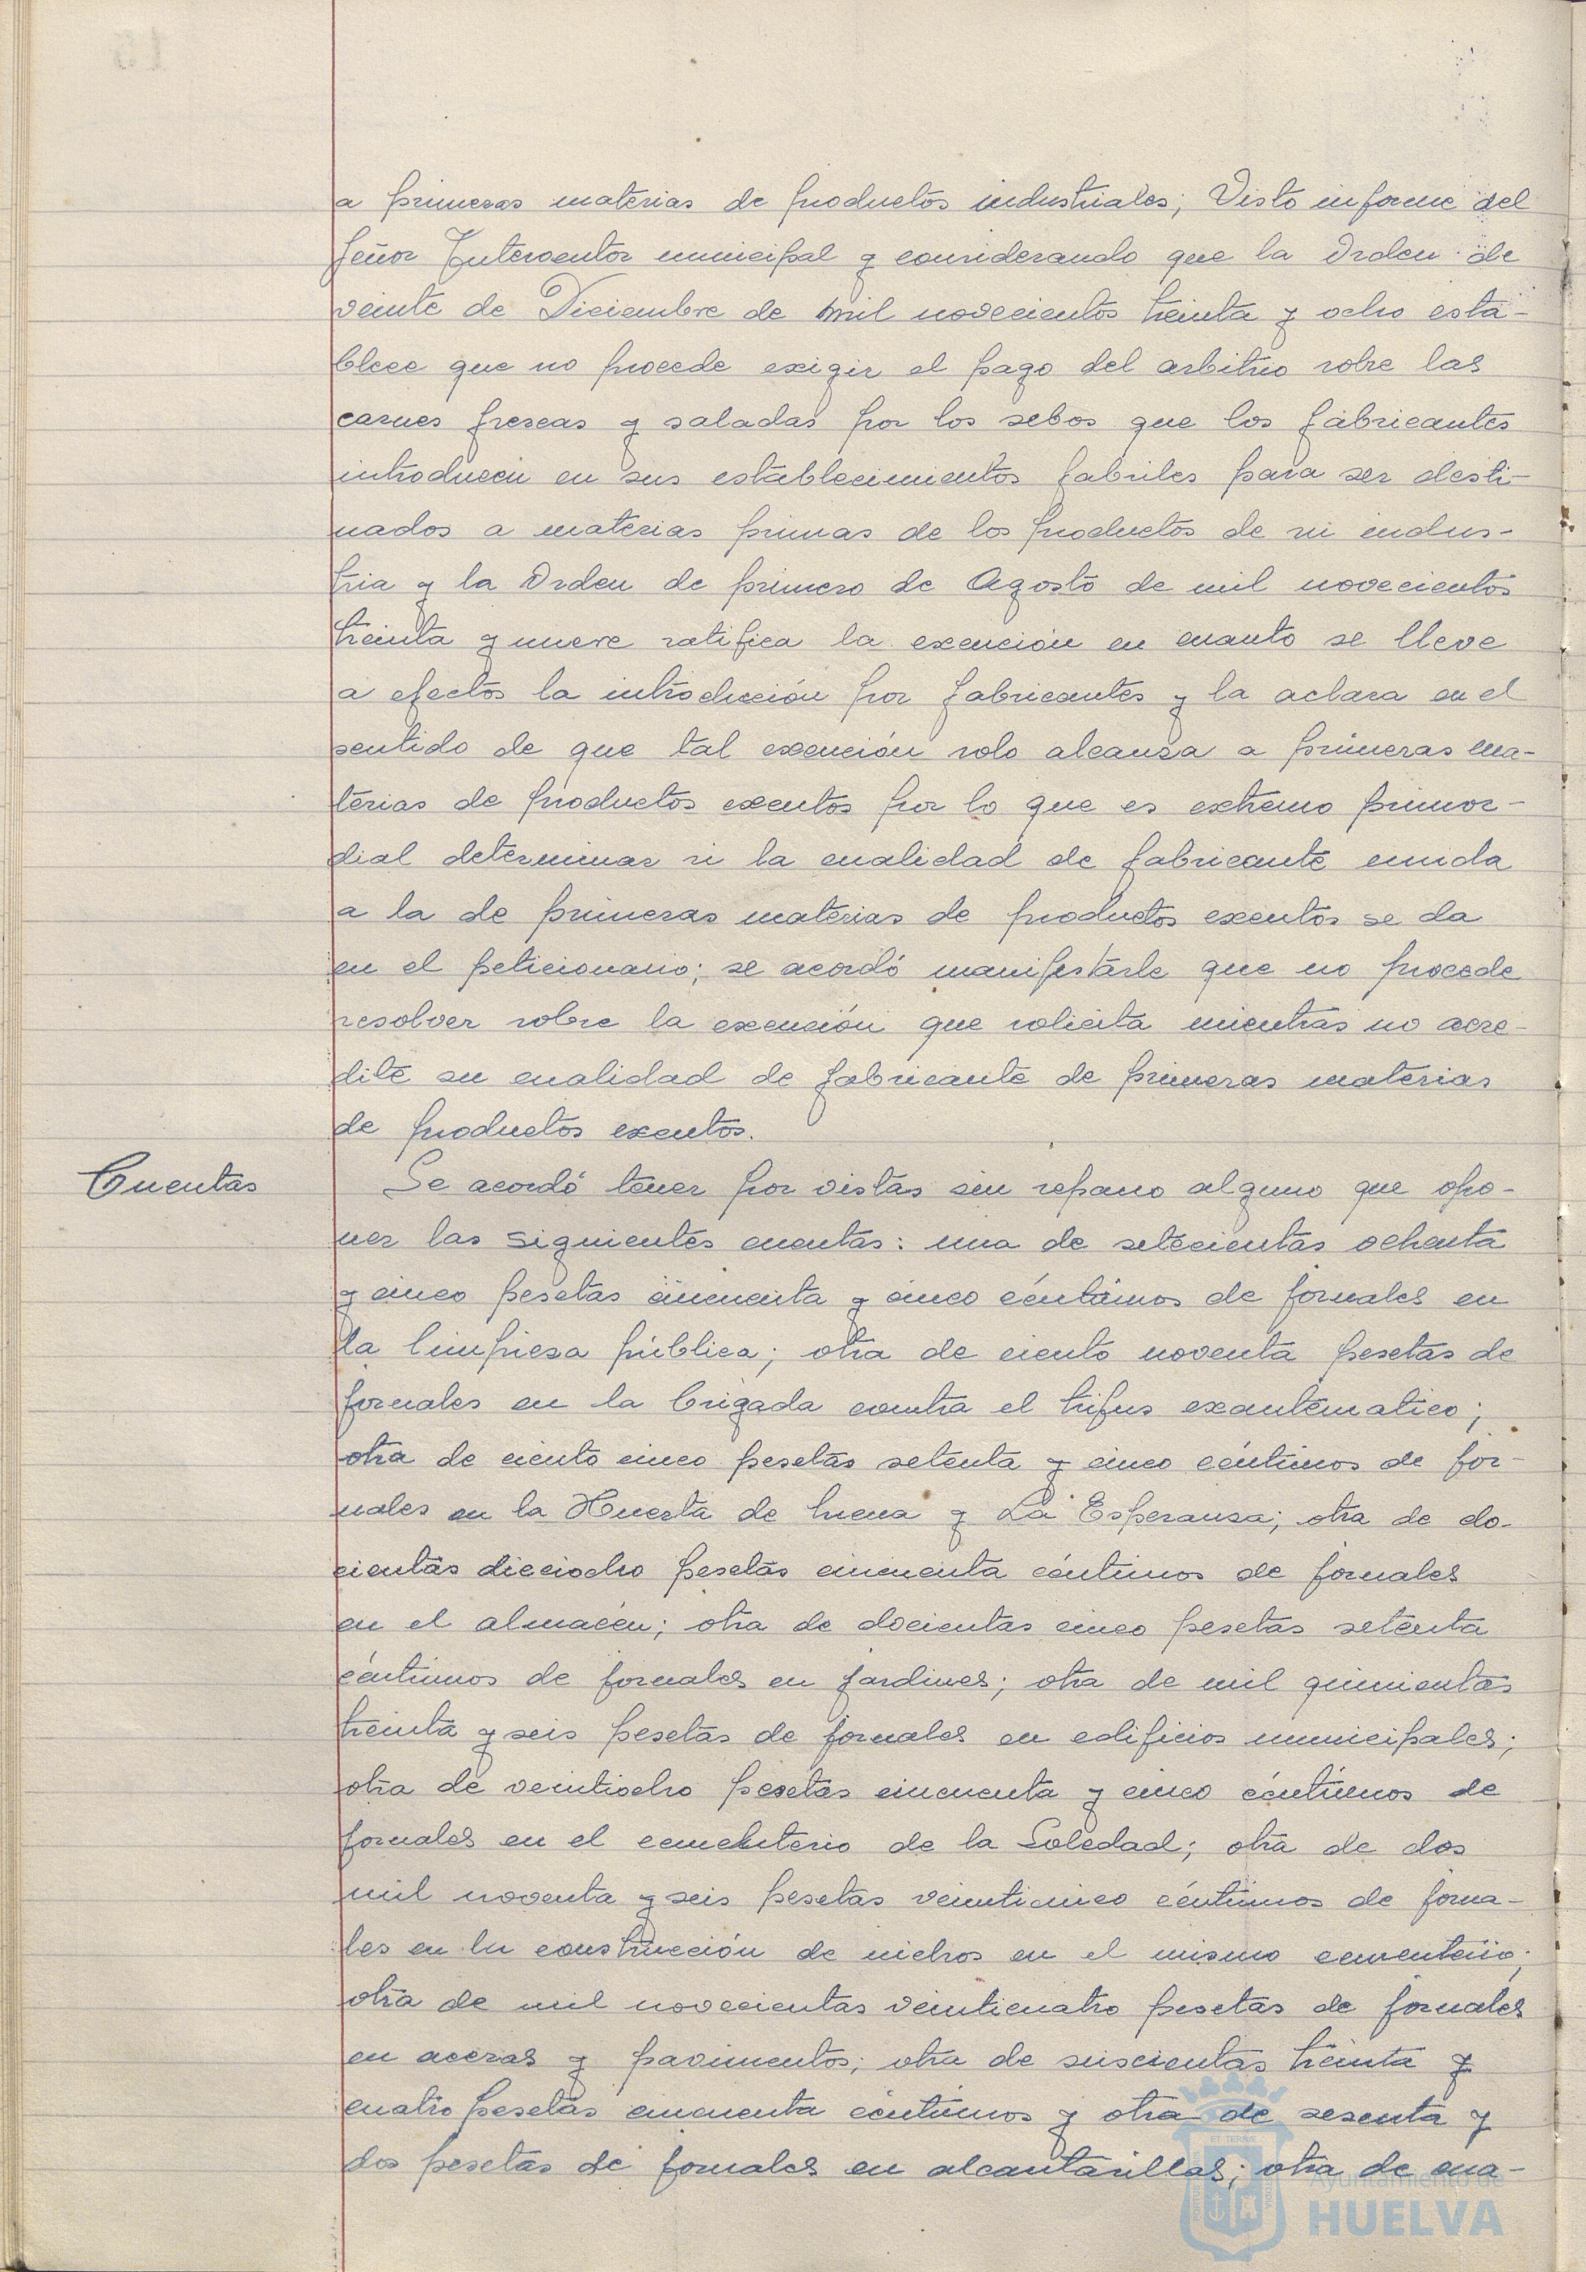 a primeras materias de productos industriales; Visto informe del
Señor Interventor municipal y considerando que la Orden de
veinte de Diciembre de mil novecientos treinta y ocho esta-
blece que no procede exigir el pago del arbitrio sobre las
carnes frescas y saladas por los sebos que los fabricantes
introducen en sus establecimientos fabriles para ser desti-
nados a materias primas de los productos de su indus-
tria y la Orden de primero de Agosto de mil novecientos
treinta y nueve ratifica la exención en cuanto se lleve
a efectos la introducción por fabricantes y la aclara en el
sentido de que tal exención solo alcanza a primeras ma-
terias de productos exentos por lo que es extremo primor-
dial determinar si la cualidad de fabricante unida
a la de primeras materias de productos exentos se da
en el peticionario; se acordó manifestarle que no procede
resolver sobre la exención que solicita mientras no acre-
dite su cualidad de fabricante de primeras materias
de productos exentos.
Cuentas Se acordó tener por vistas sin reparo alguno que opo-
ner las siguientes cuentas: una de setecientas ochenta
y cinco pesetas cincuenta y cinco céntimos de jornales en
la limpieza pública; otra de ciento noventa pesetas de
jornales en la brigada contra el tifus exantematico;
otra de ciento cinco pesetas setenta y cinco céntimos de jor-
nales en la Huerta de Mena y La Esperanza; otra de do-
cientas dieciocho pesetas cincuenta céntimos de jornales
en el almacén; otra de docientas cinco pesetas setenta
céntimos de jornales en jardines; otra de mil quinientas
treinta y seis pesetas de jornales en edificios municipales;
otra de veintiocho pesetas cincuenta y cinco céntimos de
jornales en el cementerio de la Soledad; otra de dos
mil noventa y seis pesetas veinticinco céntimos de jorna-
les en la construcción de nichos en el mismo cementerio;
otra de mil novecientas veinticuatro pesetas de jornales
en aceras y pavimentos; otra de seiscientas treinta y
cuatro pesetas cincuenta céntimos y otra de sesenta y
dos pesetas de jornales en alcantarillas; otra de cua-
Ayuntamiento de
HUELVA